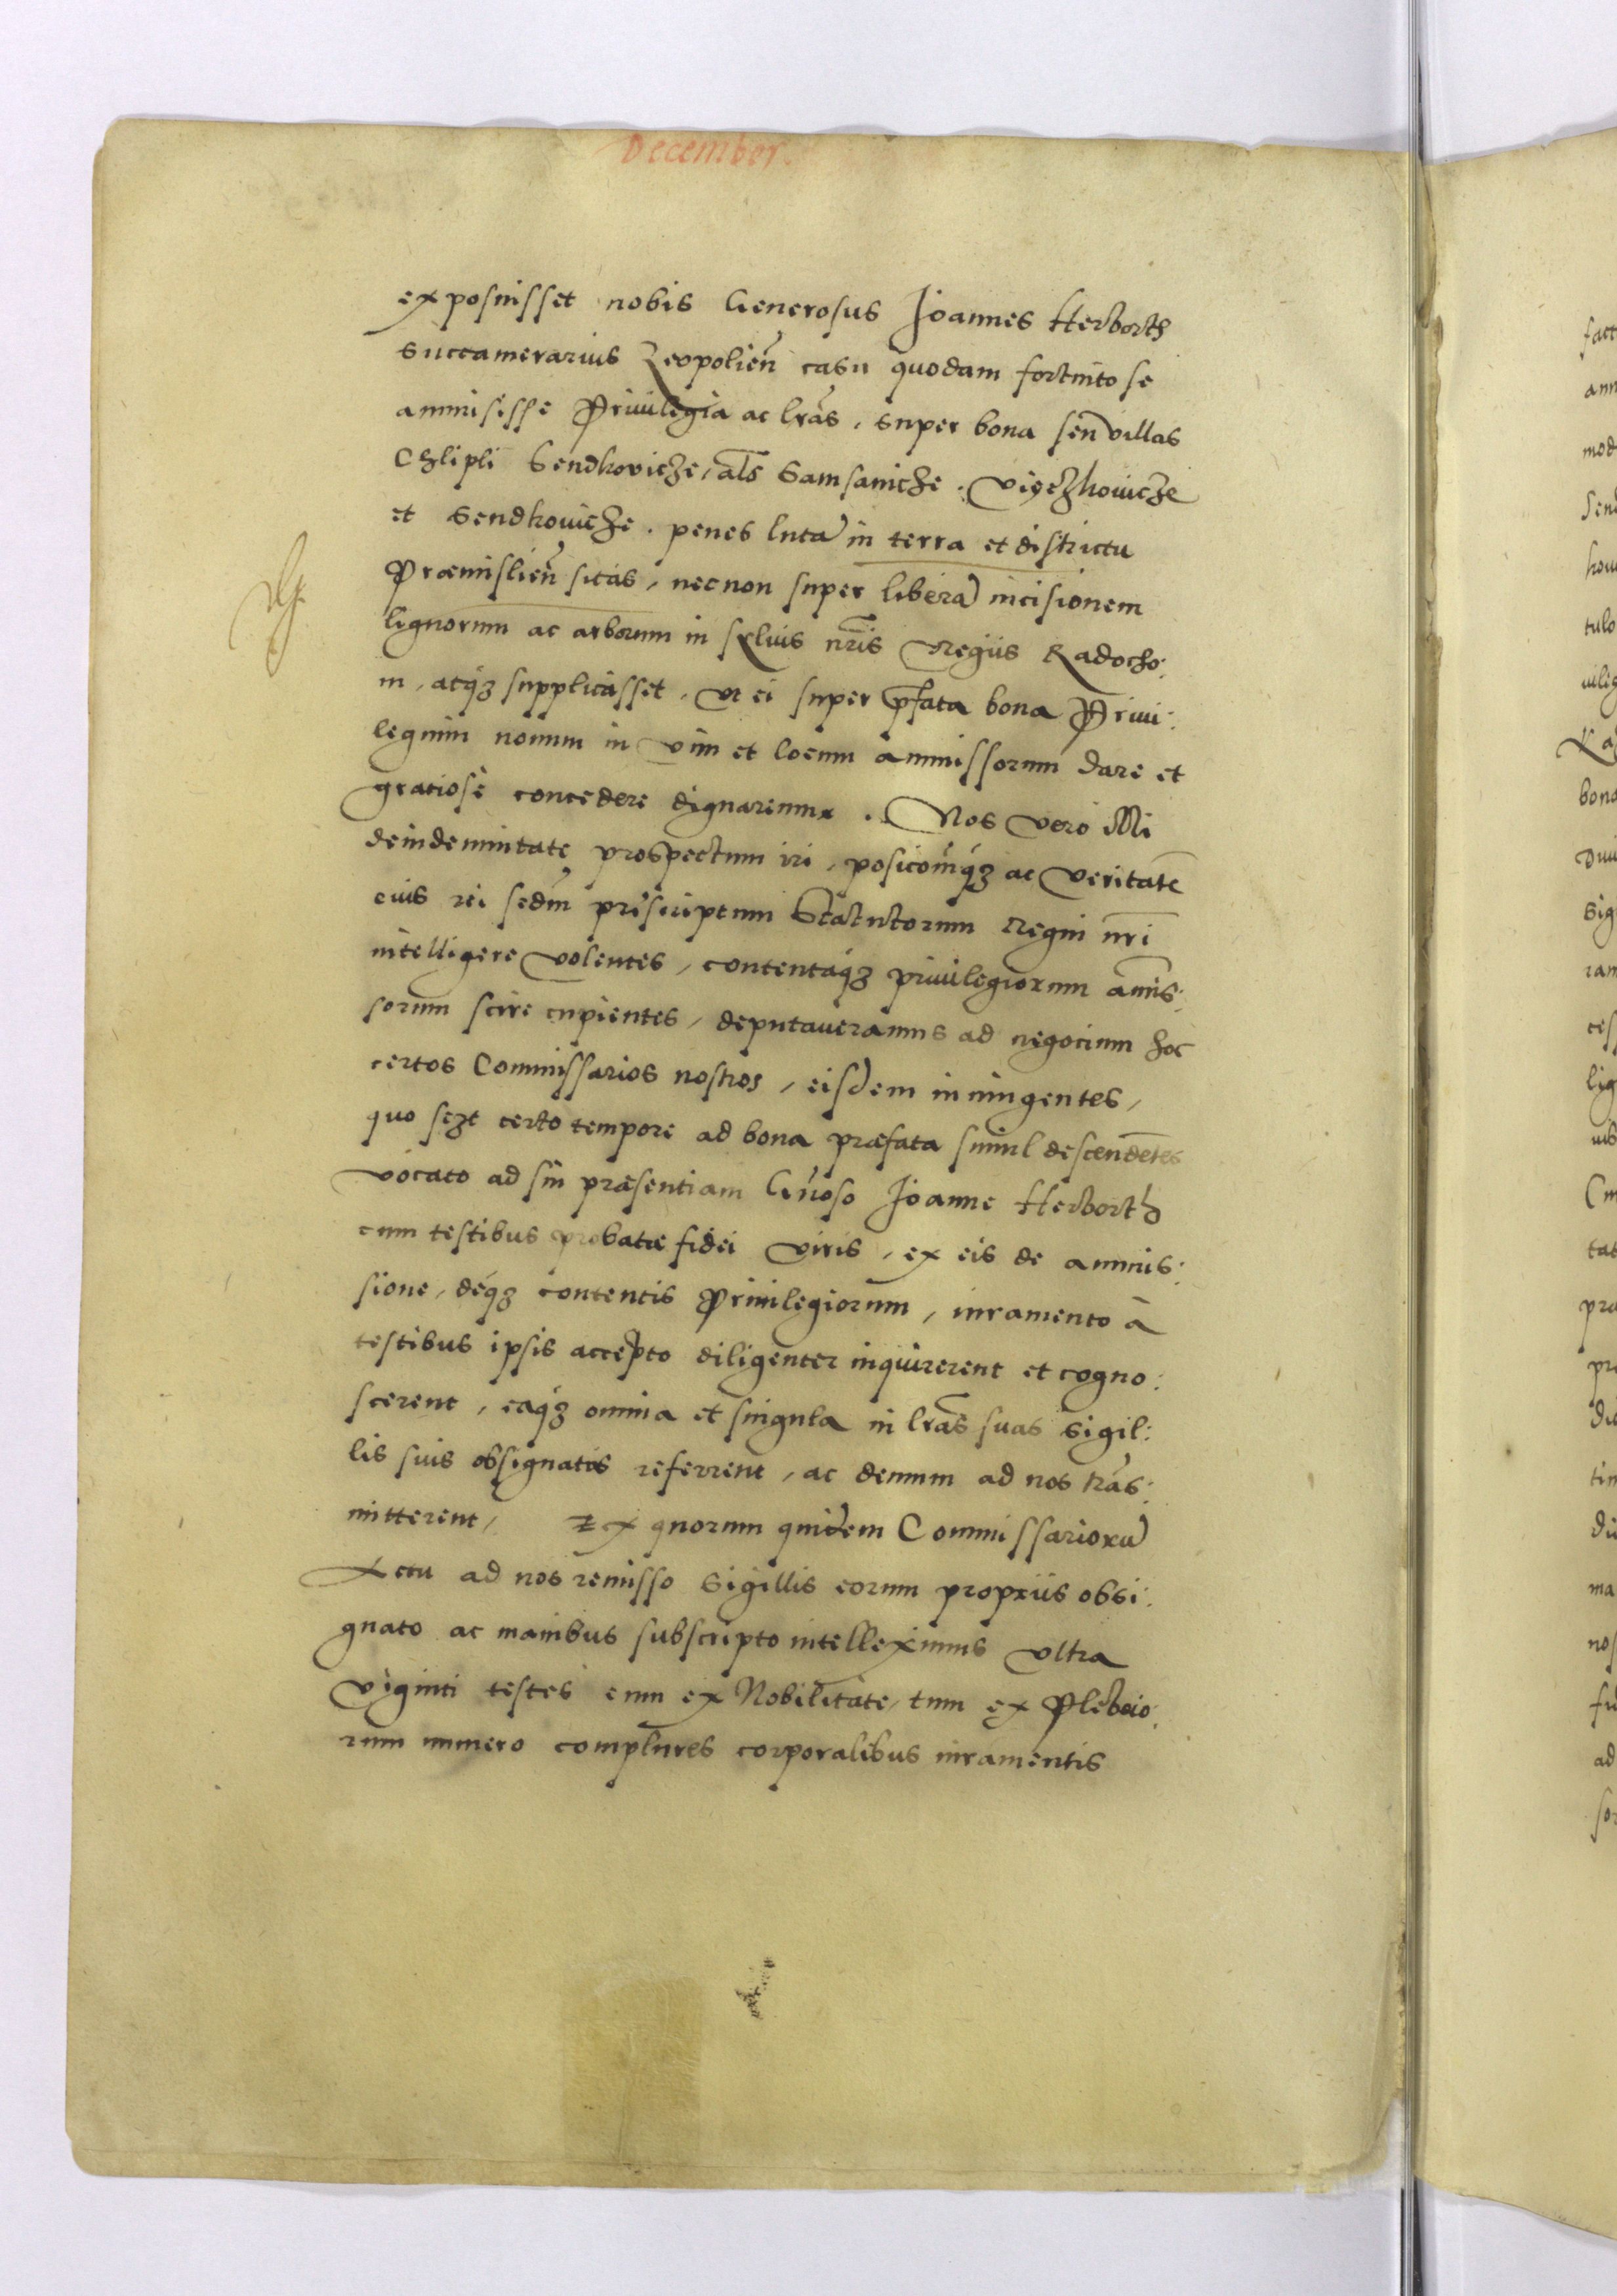 December.
exposuisset nobis Generosus Joannes Herborth
succamerarius Leopolien̄ casu quodam fortuito se
ammisisse Privilegia ac lrãs, super bona seu villas
Chlipli Sendkovicze, als Samsanicze. Vigezkovicze
et Sendkovicze. penes luta in terra et districtu
Præmislien̄ sitas, nec non super liberã incisionem
lignorum ac arborum in sylvis nr̃is Regiis Radocho:
in, atq3 supplicasset, ut ei super pfata bona Privi:
legium novum in vim et locum ammissorum dare et
gratiosè concedere dignaremur. Nos vero illi
de indemnitate prospectum iri, posicom̃q3 ac veritatē
eius rei secdm̄ præscriptum Statutorum Regni nr̃i
intelligere volentes, contentaq3 privilegiorum amis:
sorum scire cupientes, deputaveramus ad negocium hoc
certos Commissarios nostros, eisdem iniungentes,
quo sczt certo tempore ad bona præfata simul descendētes
vocato ad sui præsentiam Gn̄oso Joanne Herborth
cum testibus probatæ fidei viris, ex eis de ammis:
sione, deq3 contentis Privilegiorum, iuramento à
testibus ipsis accepto diligenter inquirerent et cogno:
scerent, eaq3 omnia et singula in lrãs suas sigil:
lis suis obsignatas referrent, ac demum ad nos trãs:
mitterent, Ex quorum quidem Commissariorũ
Actu ad nos remisso sigillis eorum propriis obsi:
gnato ac manibus subscripto intelleximus ultra
viginti testes cum ex Nobilitate, tum ex Plebeio:
rum numero complures corporalibus iuramentis